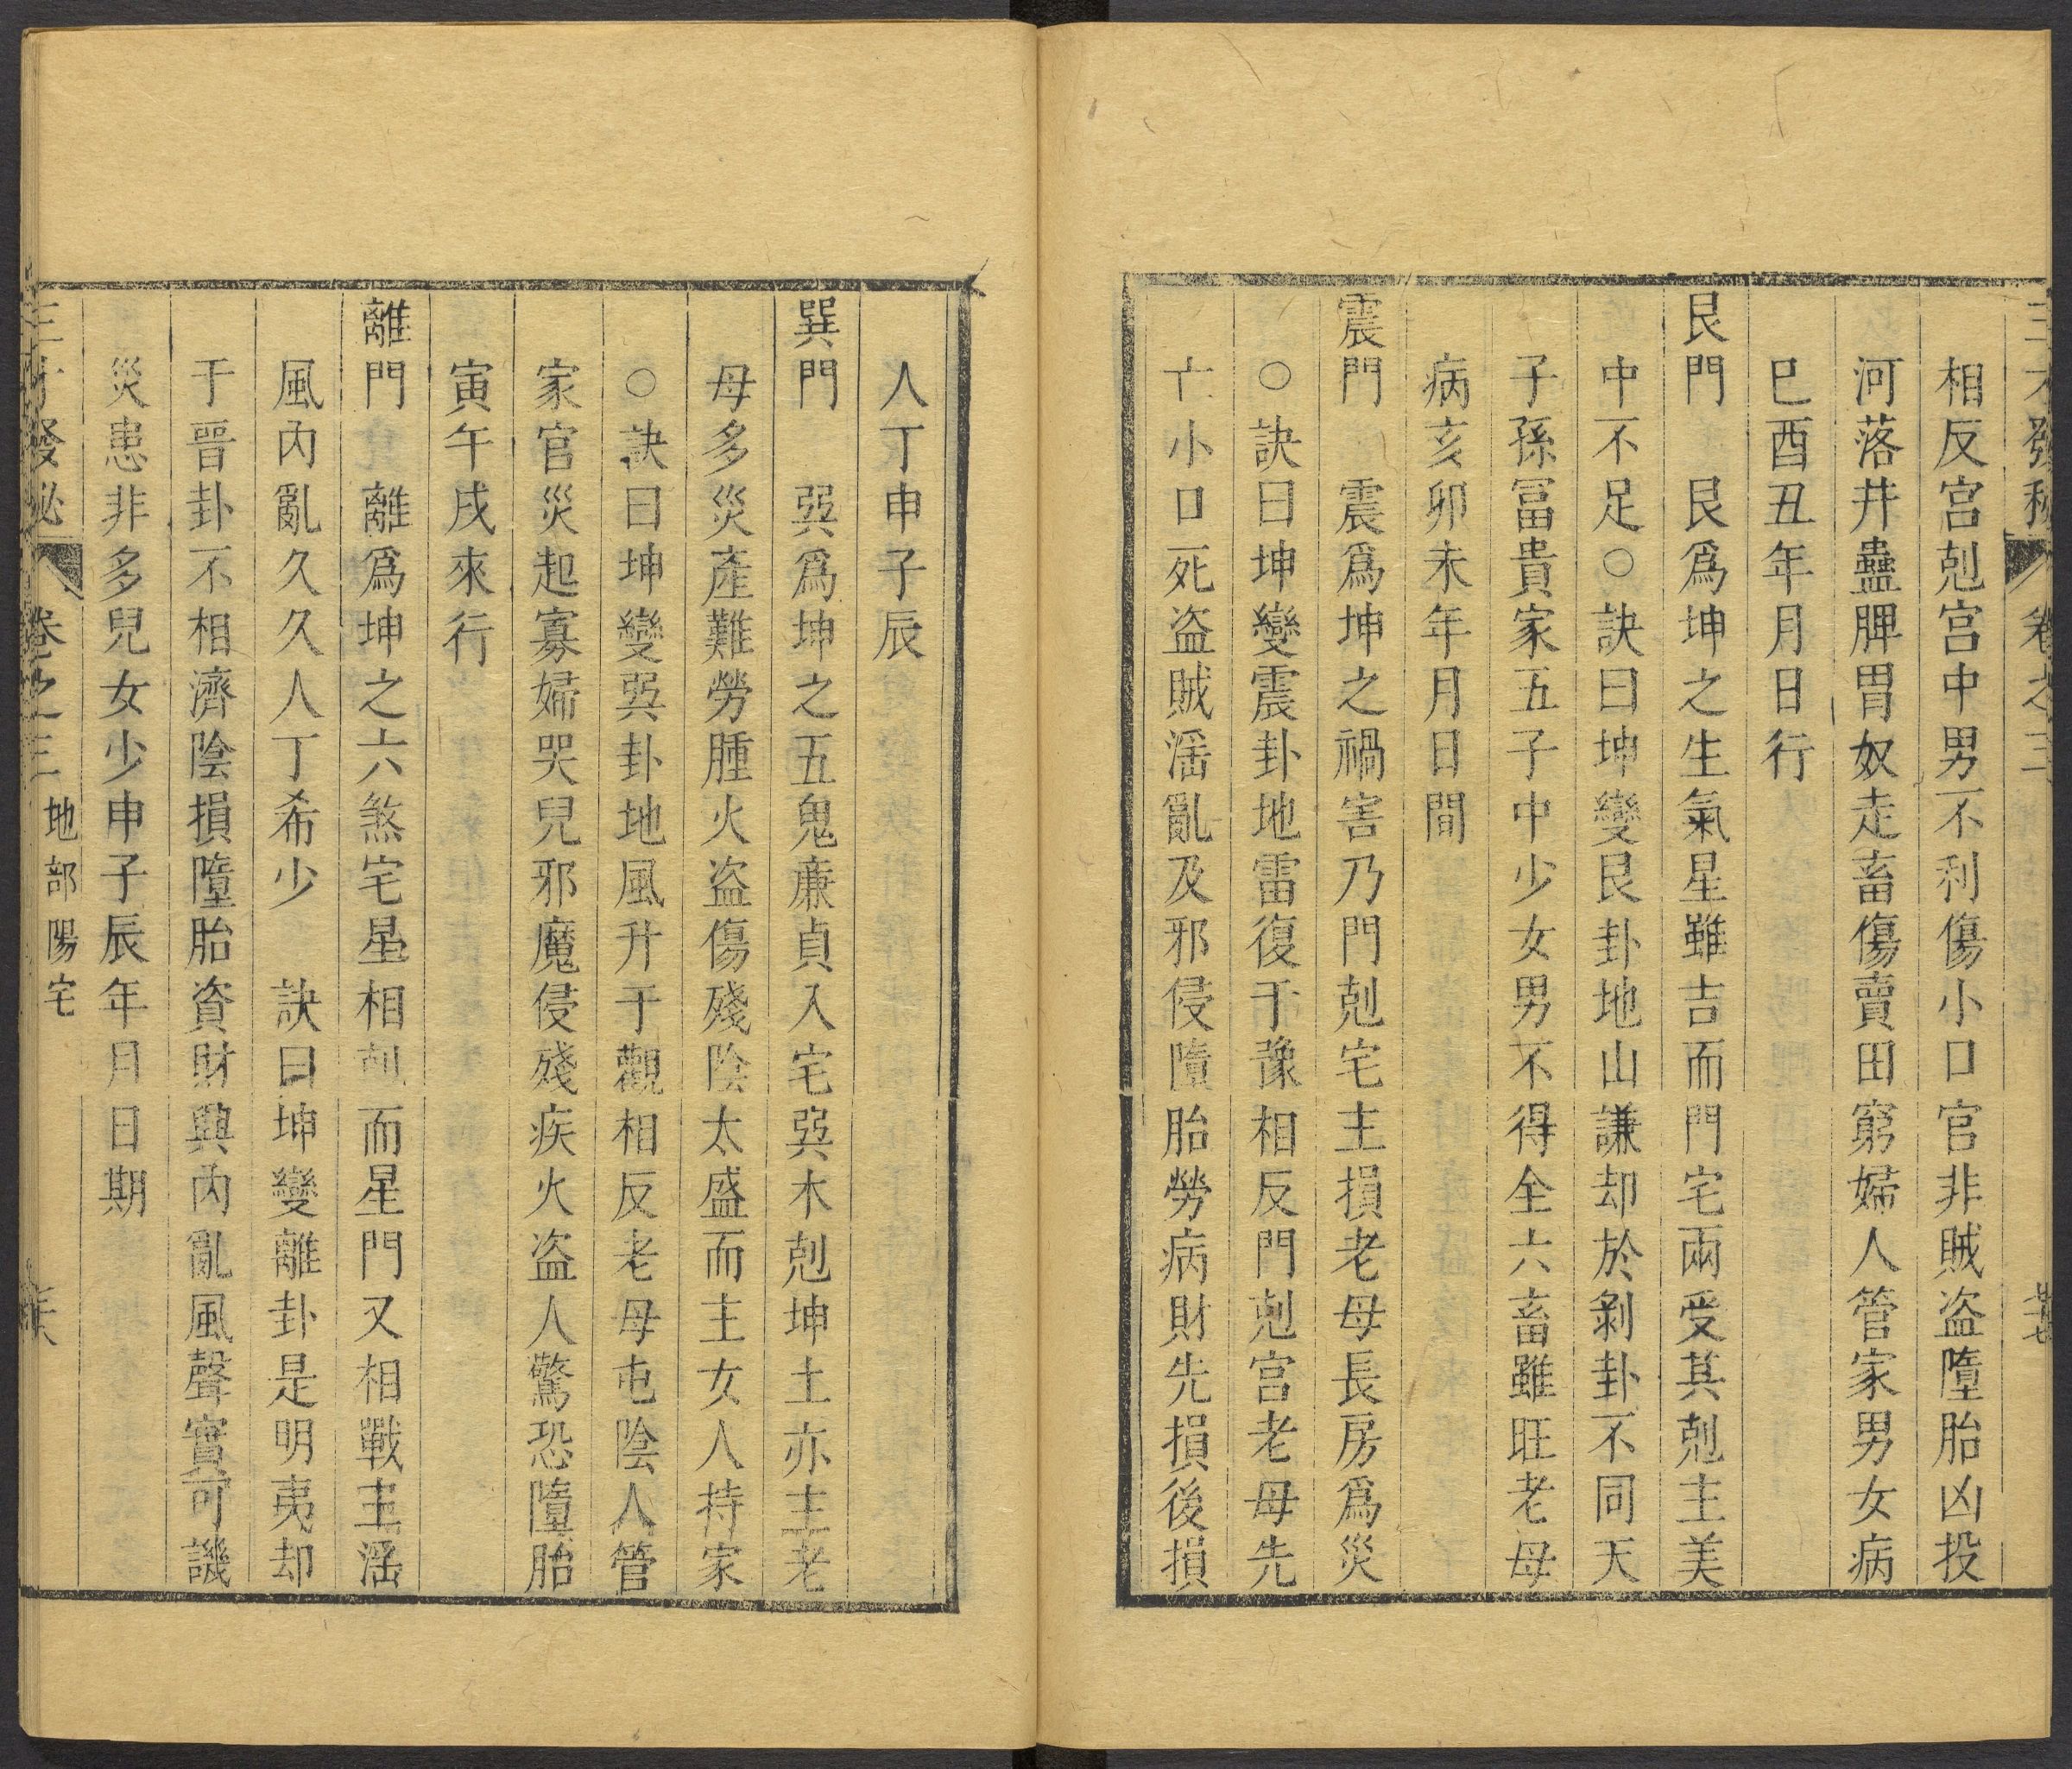 相反宮剋宮中男不利傷小口官非賊盗墮胎凶投
河落井蠱脾胃奴走畜傷賣田窮婦人管家男女病
巳酉丑年月日行
艮門 艮爲坤之生氣星雖吉而門宅兩受其剋主美
中不足○訣曰坤變艮卦地山謙却於剝卦不同天
子孫冨貴家五子中少女男不得全六畜雖旺老母
病亥卯未年月日間
震門 震爲坤之禍害乃門剋宅主損老母長房爲災
○訣曰坤變震卦地雷復于豫相反門剋宮老母先
亡小口死盗賊滛亂及邪侵墮胎勞病財先損後損
人丁申子辰
巽門 巽爲坤之五鬼亷貞入宅巽木剋坤土亦主老
母多災產難勞腫火盗傷殘陰太盛而主女人持家
○訣曰坤變巽卦地風升于觀相反老母屯陰人管
家官災起寡婦哭兒邪魔侵殘疾火盗人驚恐墮胎
寅午戌來行
離門 離爲坤之六煞宅星相剋而星門又相戰主滛
風內亂久久人丁希少 訣曰坤變離卦是明夷却
于晉卦不相濟陰損墮胎資財興內亂風聲實可譏
災患非多兒女少申子辰年月日期
卷之三 地部陽宅